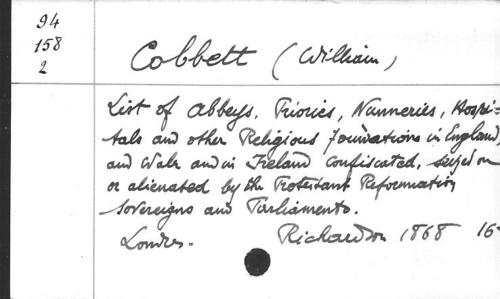 94
158
2
Cobbett (William)
List of Abbeys, Priories, Nunneries, Hospi-
tals and other Religious foundations in England,
and Wales and in Ireland confiscated, seized on
or alienated by the Protestant Reformation
Sovereigns and Parliaments.
Londres. Richardson 1868 16-